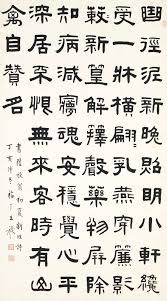 曲徑泥新晚照明小軒纔
受一牀橫翩〻乳燕穿簾影
蔌〻新篁解籜聲藥物屏除
知病減夢魂安穩覺心平
深居不恨無來客時有山
禽自名
書陸放翁初夏新晴詩
丁亥仲冬福厂王禔